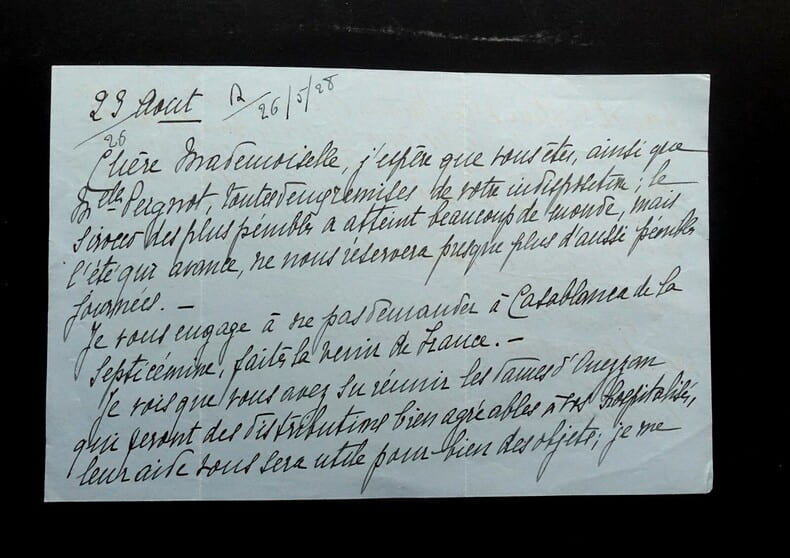 23 Août R 26/5/28
26
Chère Mademoiselle, j'espère que vous êtes, ainsi que
Melle Peignot, toutes deux remises de votre indisposition ; le
sirocco des plus pénibles a atteint beaucoup de monde, mais
l'été qui avance, ne nous réservera presque plus d'aussi pénibles
journées. —
Je vous engage à ne pas demander à Casablanca de la
Septicémine, faites la venir de France. —
Je vois que vous avez su réunir les dames d'Ouezzan
qui feront des distributions bien agréables à vos hospitalisés,
leur aide vous sera utile pour bien des objets ; je me